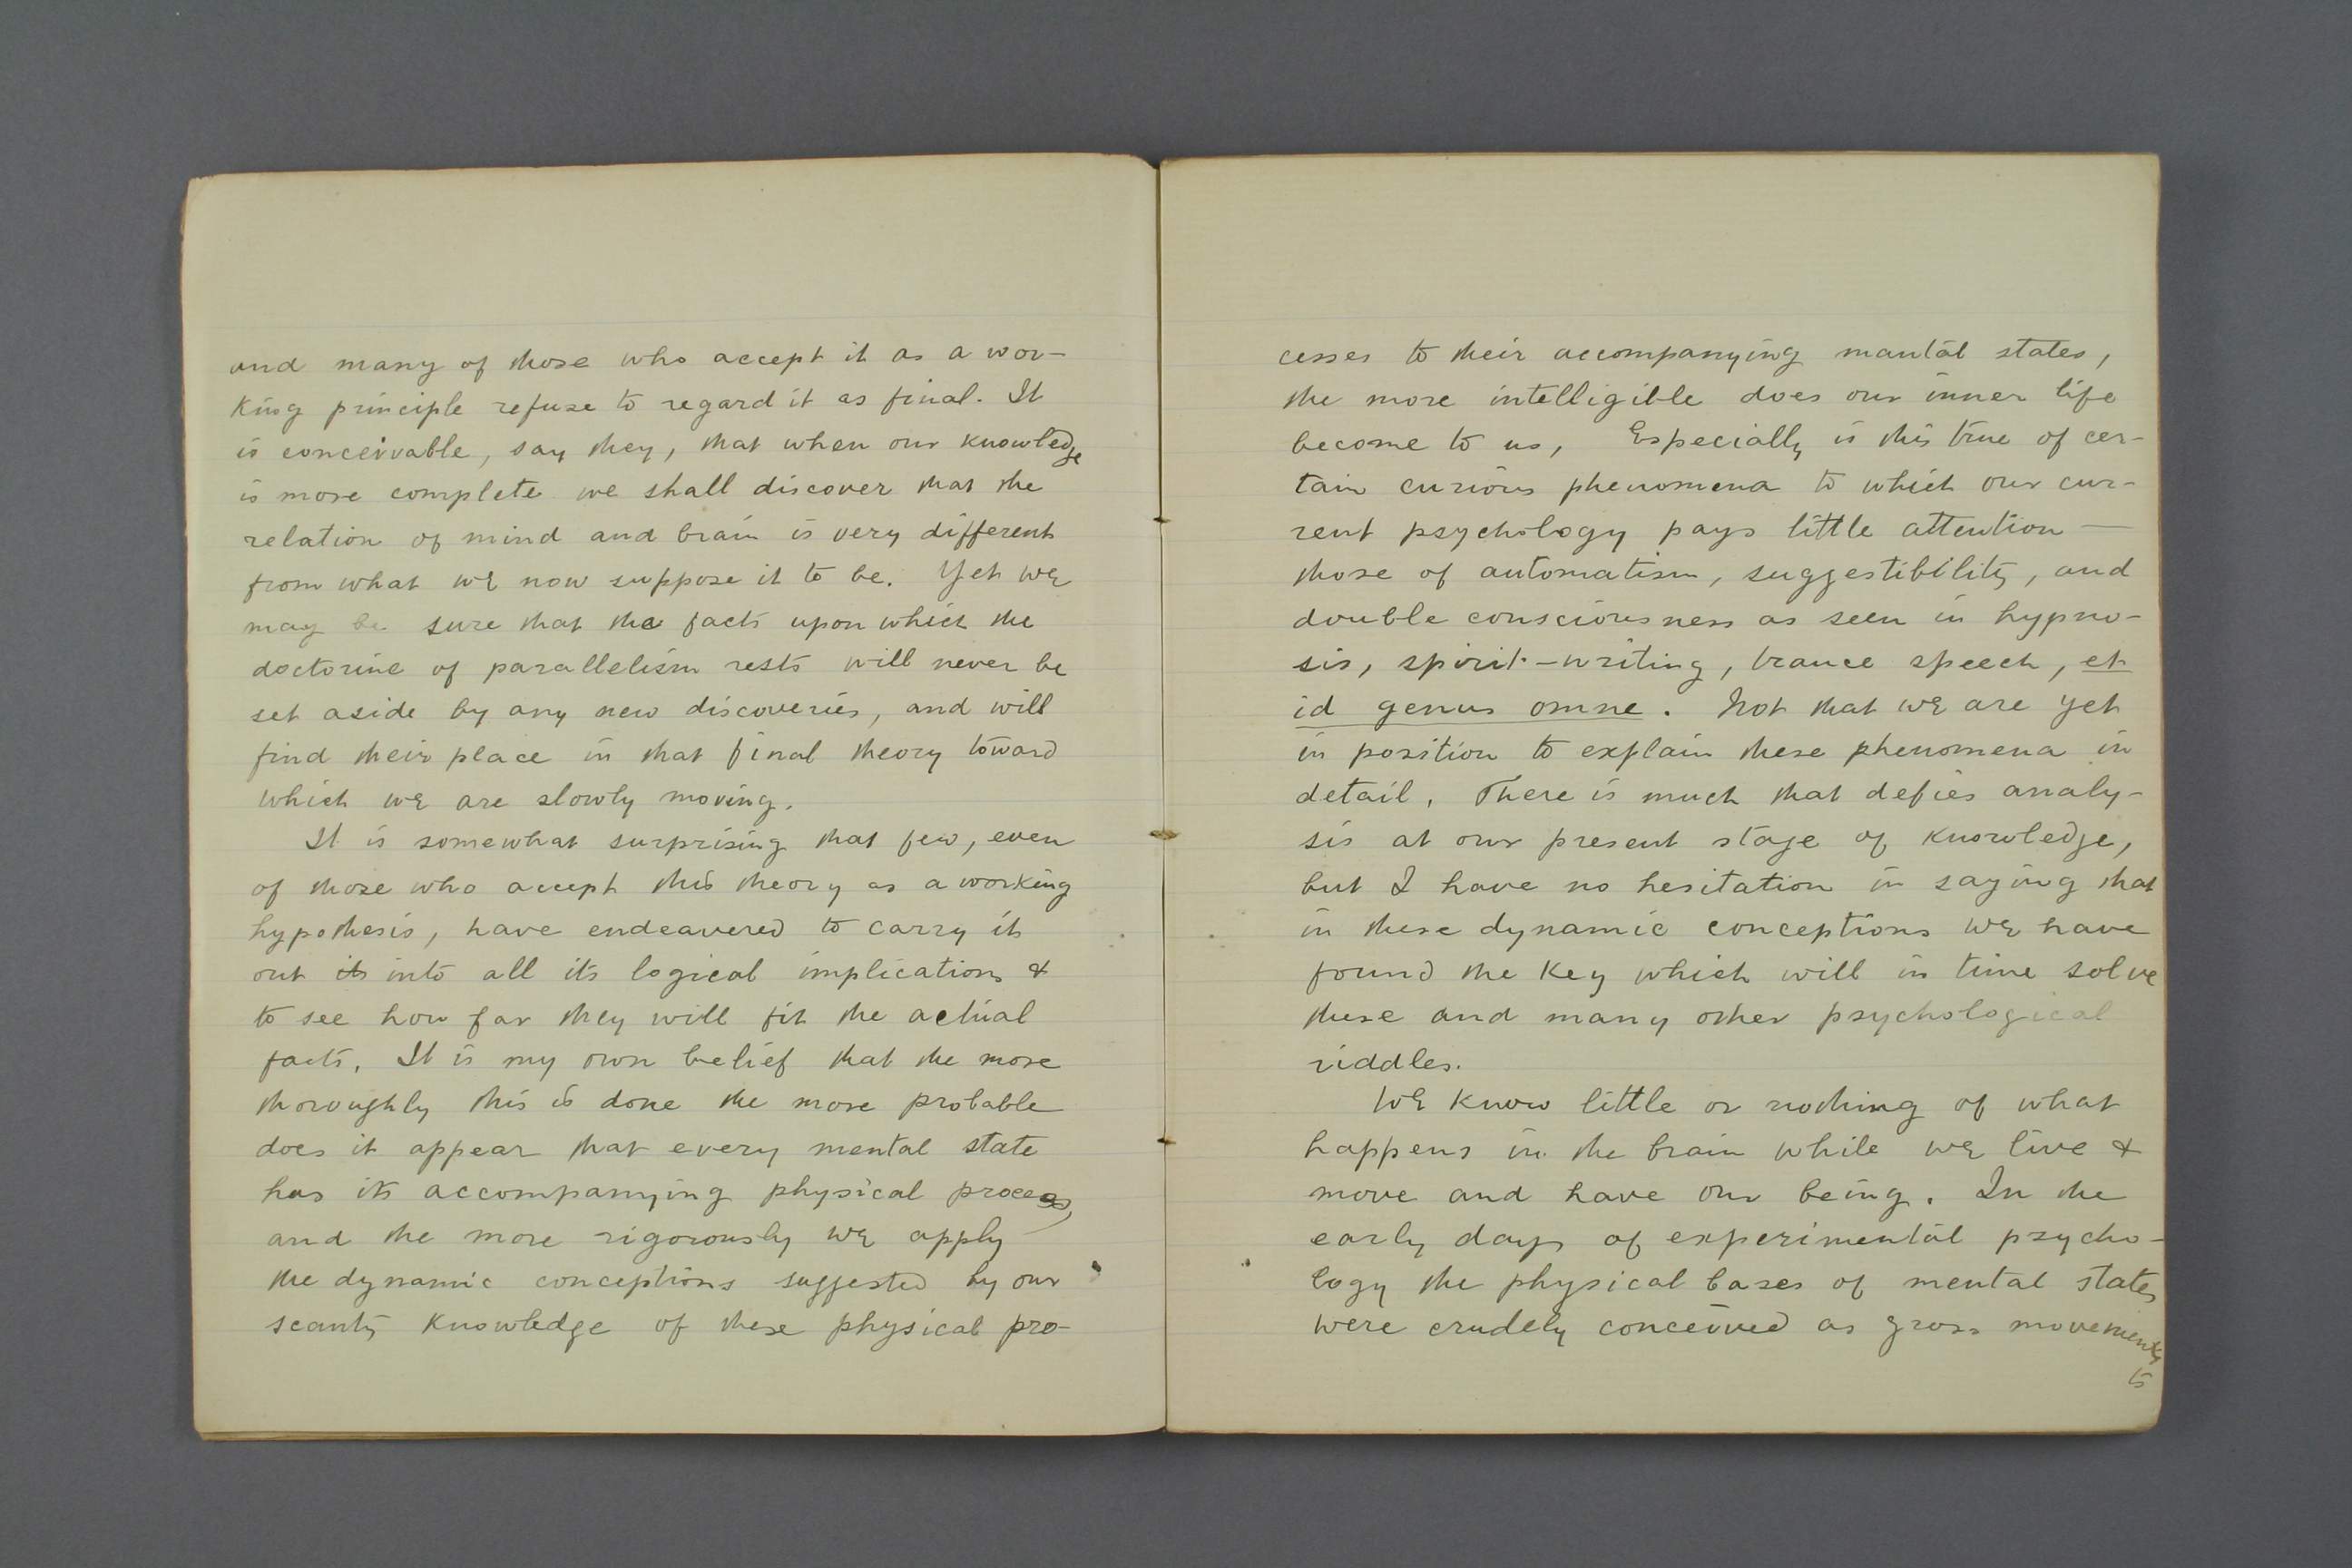 and many of those who accept it as a wor-
king principle refuse to regard it as final. It
is conceivable, say they, that when our knowledge
is more complete we shall discover that the
relation of mind and brain is very different
from what we now suppose it to be. Yet we
may be sure that the facts upon which the
doctorine of parallelism rests will never be
set aside by any new discoveries, and will
find their place in that final theory toward
which we are slowly moving.
It is somewhat surprising that few, even
of those who accept this theory as a working
hypothesis, have endeavered to carry it
out its into all its logical implications &
to see how far they will fit the actual
facts. It is my own belief that the more
thoroughly this is done the more probable
does it appear that every mental state
has its accompanying physical process,
and the more rigorously we apply
the dynamic conceptions suggested by our
scanty knowledge of these physical pro-
cesses to their accompanying mantal states,
the more intelligible does our inner life
become to us, Especially is this true of cer-
tain curious phenomena to which our cur-
rent psychology pays little attention —
those of automatism, suggestibility, and
double consciousness as seen in hypno-
sis, spirit-writing, trance speech, et
id genus omne. Not that we are yet
in position to explain these phenomena in
detail. There is much that defies analy-
sis at our present stage of knowledge,
but I have no hesitation in saying that
in these dynamic conceptions we have
found the key which will in time solve
these and many other psychological
riddles.
We know little or nothing of what
happens in the brain while we live &
move and have our being. In the
early days of experimental psycho-
logy the physical bases of mental states
were crudely conceived as gross movements
15